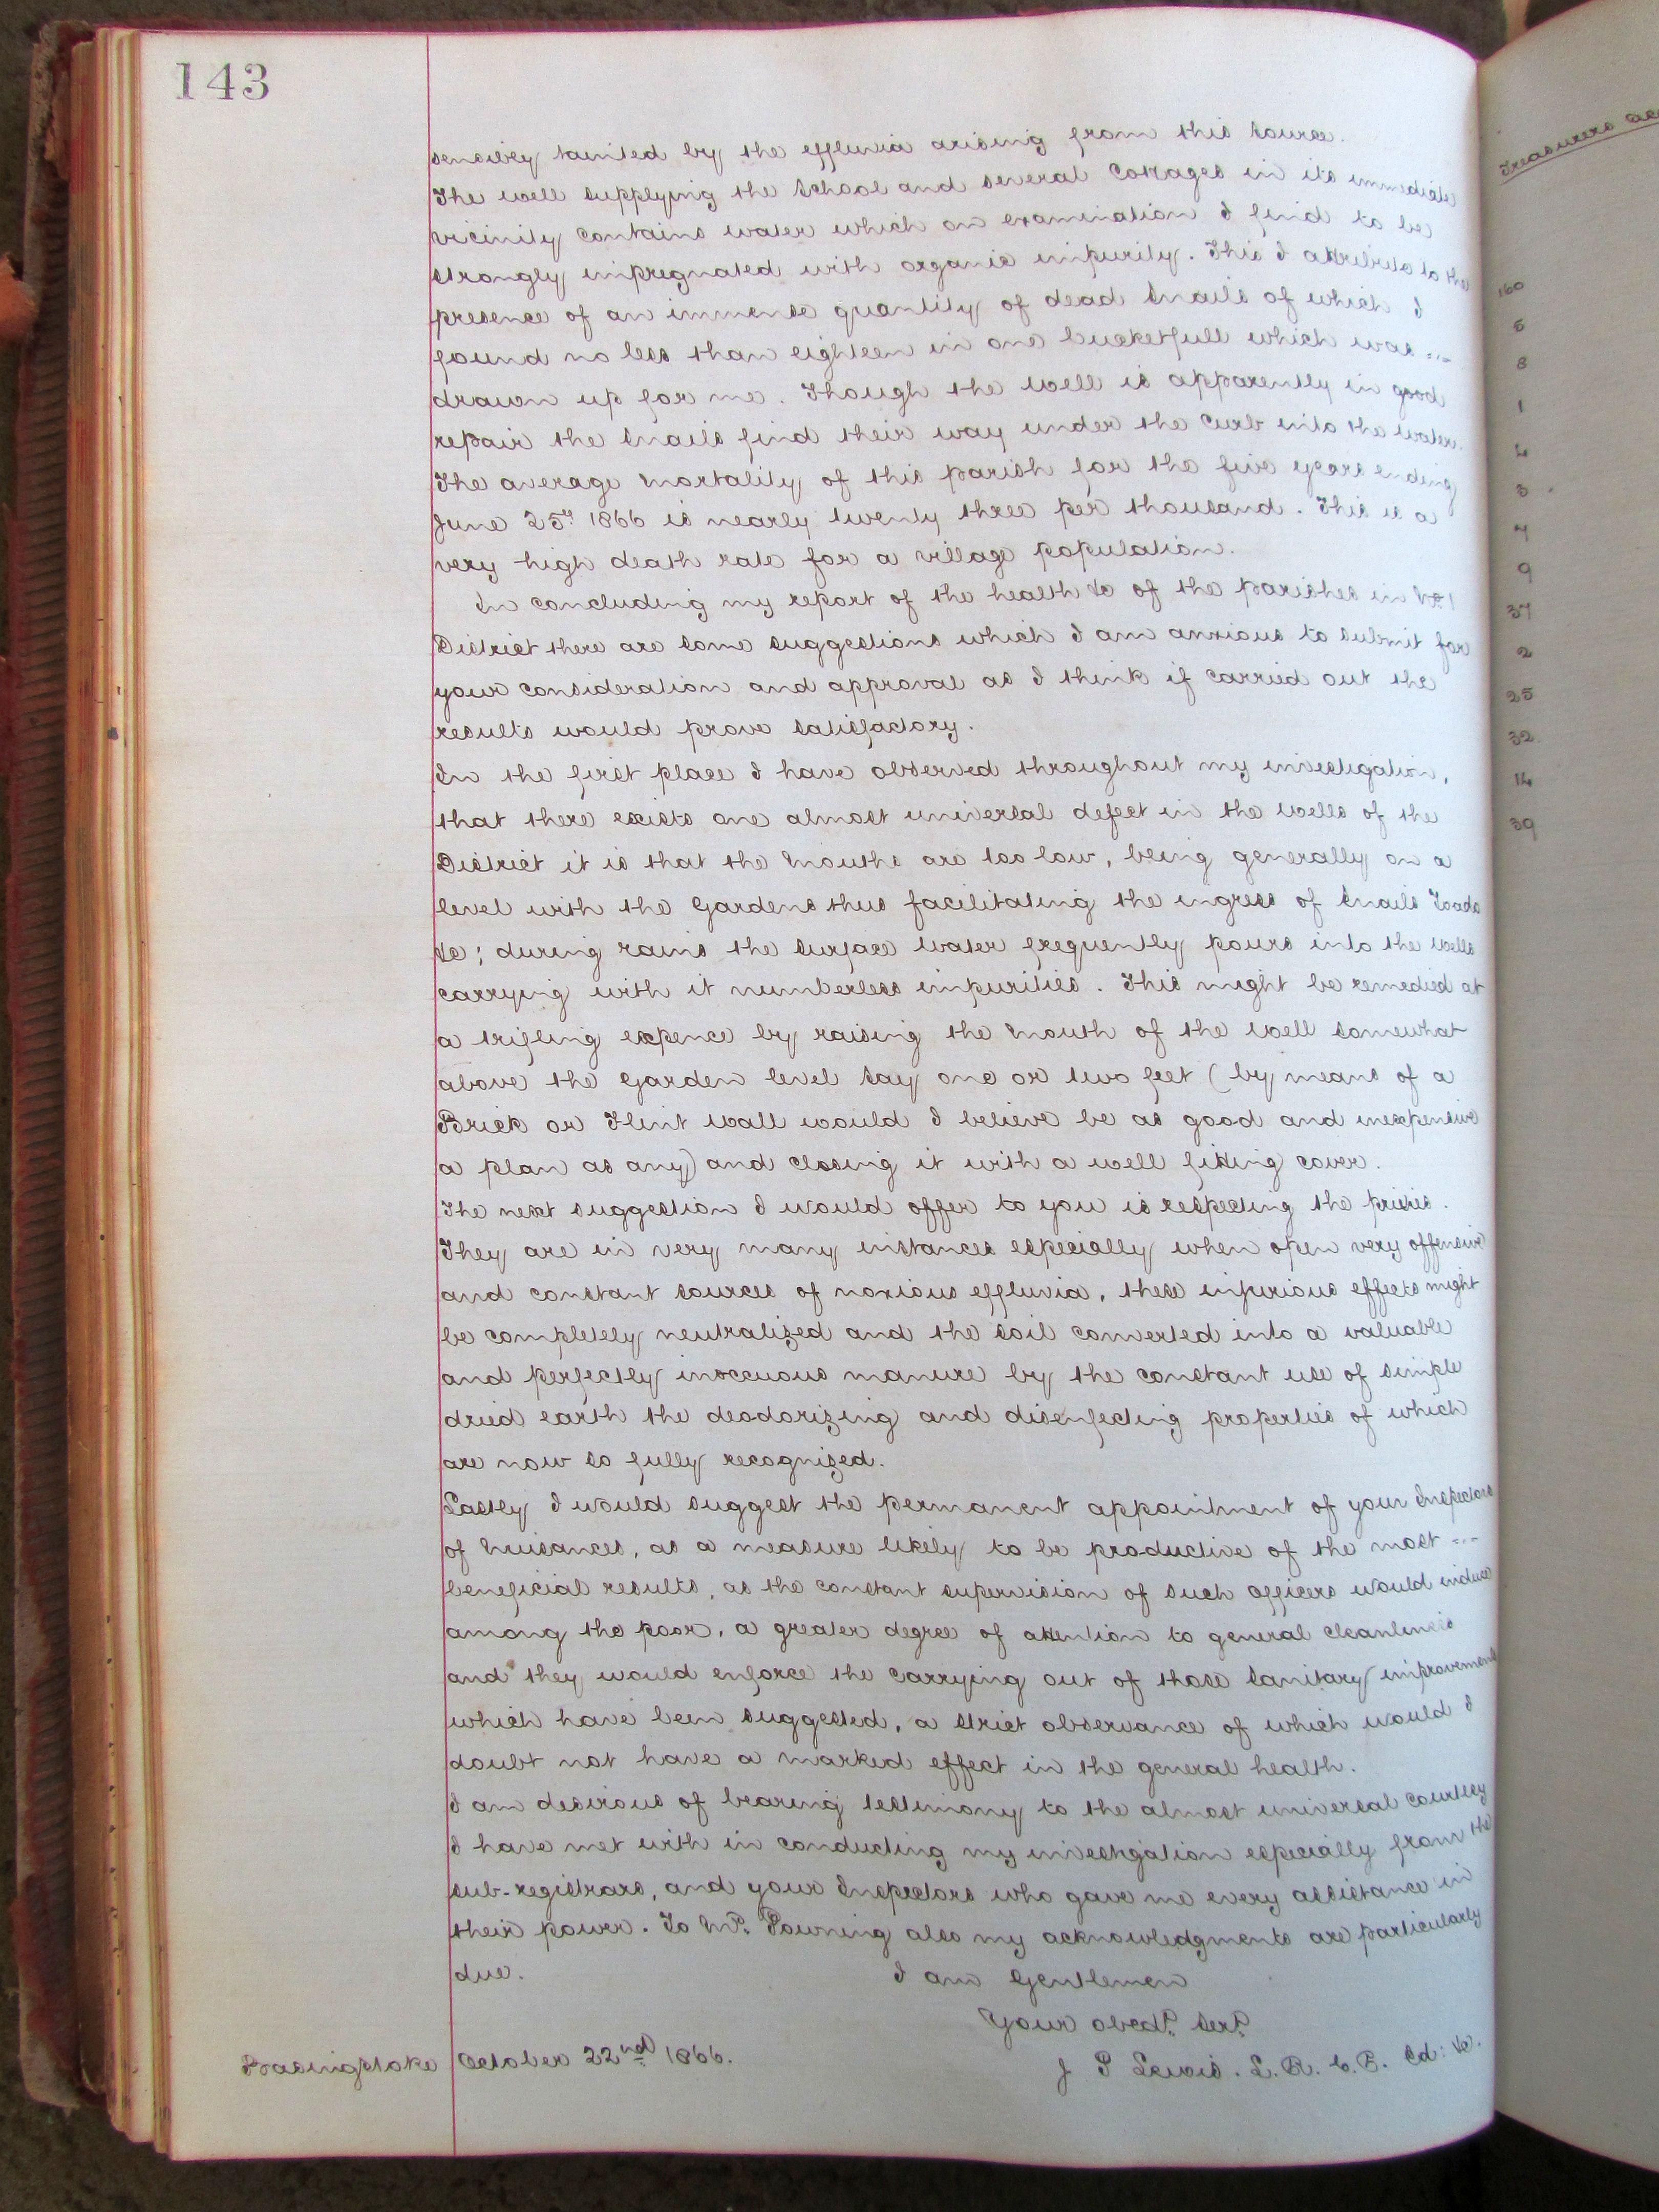 143
sensibly tainted by the effluvia arising from this source.
The well supplying the School and several Cottages in its immediate
vicinity contains water which on examination I find to be
strongly impregnated with organic impurity. This I attribute to the
presence of an immense quantity of dead Snails of which I
found no less than eighteen in one bucketfull which was ...
drawn up for me. Though the well is apparently in good
repair the Snails find their way under the Curb into the water.
The average Mortality of this parish for the five years ending
June 25th 1866 is nearly twenty three per thousand. This is a
very high death rate for a village population.
In concluding my report of the health &c of the parishes in No 1
District there are some suggestions which I am anxious to submit for
your consideration and approval as I think if carried out the
results would prove satisfactory.
In the first place I have observed throughout my investigation,
that there exists one almost universal defect in the wells of the
District it is that the Mouths are too low, being generally on a
level with the Gardens thus facilitating the ingress of Snails Toads
&c; during rains the surface water frequently pours into the wells
carrying with it numberless impurities. This might be remedied at
a trifling expence by raising the Mouth of the well somewhat
above the Garden level say one or two feet (by means of a
Brick or Flint wall would I believe be as good and inexpensive
a plan as any) and closing it with a well fitting cover.
The next suggestion I would offer to you is respecting the privies.
They are in very many instances especially when open very offensive
and constant sources of noxious effluvia, these injurious effects might
be completely neutralized and the soil converted into a valuable
and perfectly inoccuous manure by the constant use of simple
dried earth the deodorizing and disenfecting properties of which
are now so fully recognized.
Lastly I would suggest the permanent appointment of your Inspectors
of Nuisances, as a measure likely to be productive of the most ...
beneficial results, as the constant supervision of such officers would induce
among the poor, a greater degree of attention to general cleanliness
and they would enforce the carrying out of those Sanitary improvements
which have been suggested, a strict observance of which would I
doubt not have a marked effect in the general health.
I am desirous of bearing testimony to the almost universal courtesy
I have met with in conducting my investigation especially from the
sub-registrars, and your Inspectors who gave me every assistance in
their power. To Mr. Downing also my acknowledgments are particularly
due. I am Gentlemen
Your obedt. Sert.
Basingstoke October 22nd 1866.
J P Lewis. L.R.C.P. Ed: &c.
Treasurers
160
6
8
1
4
3
7
9
37
2
25
32
14
39